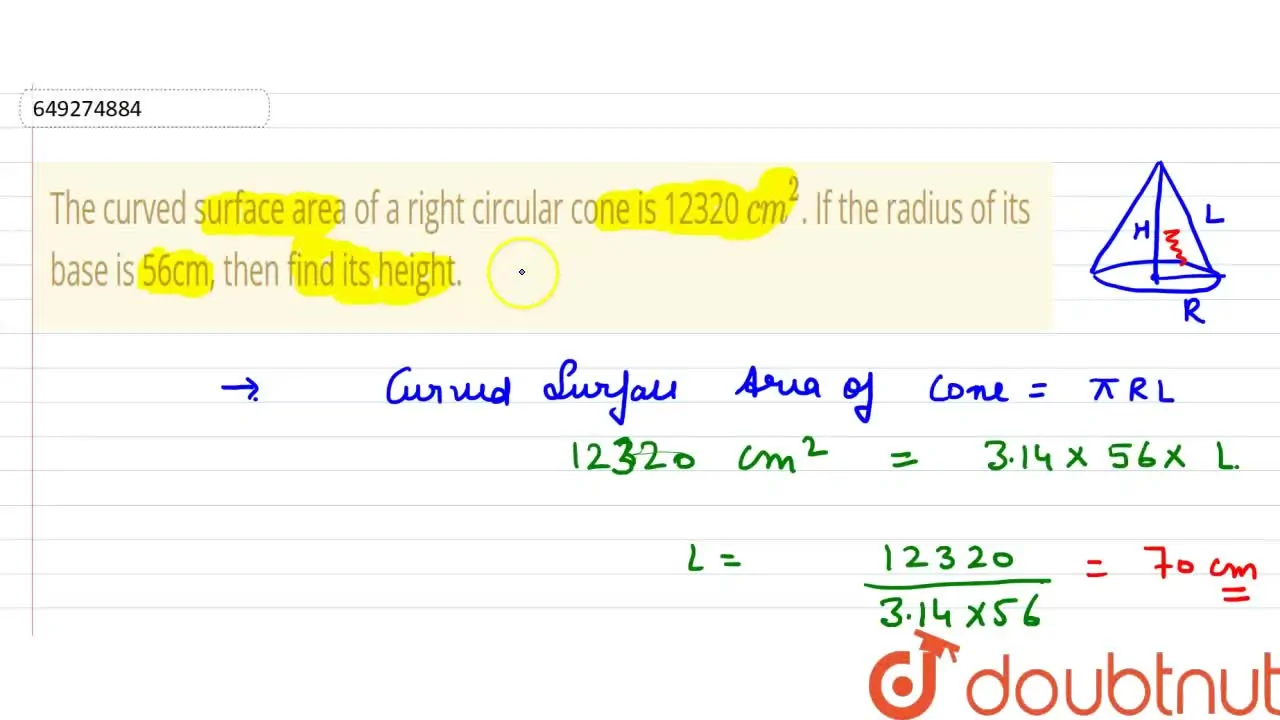 649274884
The curved surface area of a right circular cone is 12320 cm². If the radius of its
base is 56cm, then find its height.
H
L
R
→ Curved Surface Area of cone = πRL
12320 cm² = 3.14 × 56 × L.
L = 12320 / 3.14 × 56 = 70 cm
doubtnut